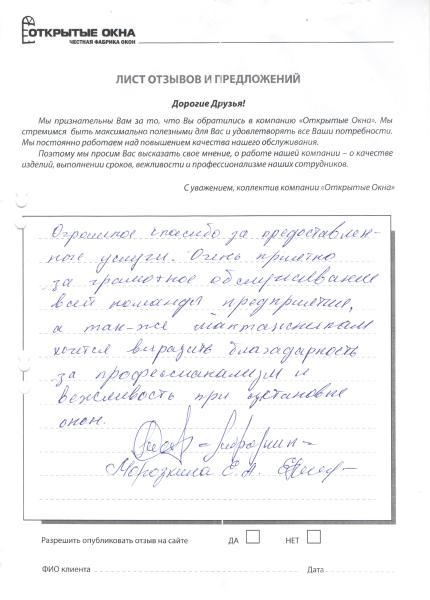 ОТКРЫТЫЕ ОКНА
ЧЕСТНАЯ ФАБРИКА ОКОН
ЛИСТ ОТЗЫВОВ И ПРЕДЛОЖЕНИЙ
Дорогие Друзья!
Мы признательны Вам за то, что Вы обратились в компанию «Открытые Окна». Мы
стремимся быть максимально полезными для Вас и удовлетворять все Ваши потребности.
Мы постоянно работаем над повышением качества нашего обслуживания.
Поэтому мы просим Вас высказать свое мнение, о работе нашей компании – о качестве
изделий, выполнении сроков, вежливости и профессионализме наших сотрудников.
С уважением, коллектив компании «Открытые Окна»
Огромное спасибо за предоставлен-
ные услуги. Очень приятно
за грамотное обслуживание
всей команды предприятия,
а так-же монтажникам
хочется выразить благодарность
за профессионализм и
вежливость при установке
окон.
Морозкина Е. А.
Разрешить опубликовать отзыв на сайте ДА НЕТ
ФИО клиента Дата